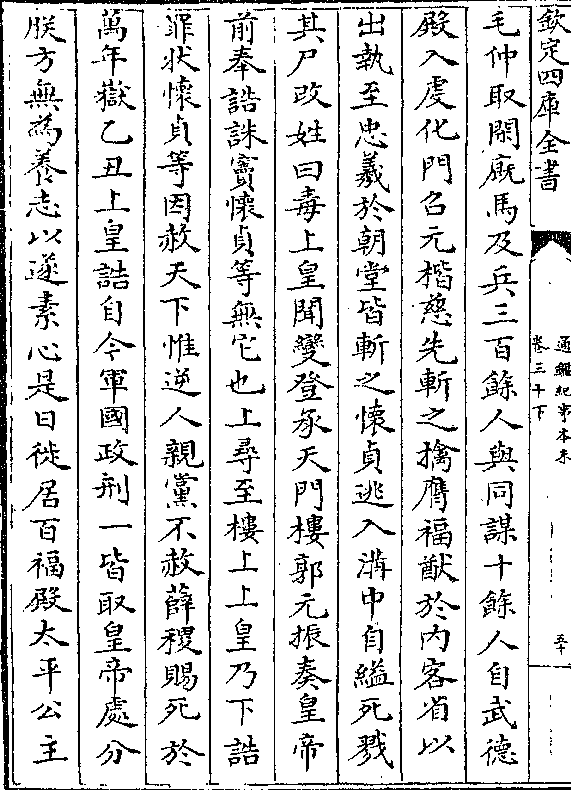 欽定四庫全書
通鑑紀事本末
卷三十下
五十
毛仲取閑廐馬及兵三百餘人與同謀十餘人自武德
殿入虔化門召元楷慈先斬之擒膺福猷於内客省以
出執至忠羲於朝堂皆斬之懷貞逃入溝中自縊死戮
其尸改姓曰毒上皇聞變登承天門樓郭元振奏皇帝
前奉誥誅竇懷貞等無它也上尋至樓上上皇乃下誥
罪狀懷貞等因赦天下惟逆人親黨不赦薛稷賜死於
萬年獄乙丑上皇誥自今軍國政刑一皆取皇帝處分
朕方無為養志以遂素心是日徙居百福殿太平公主